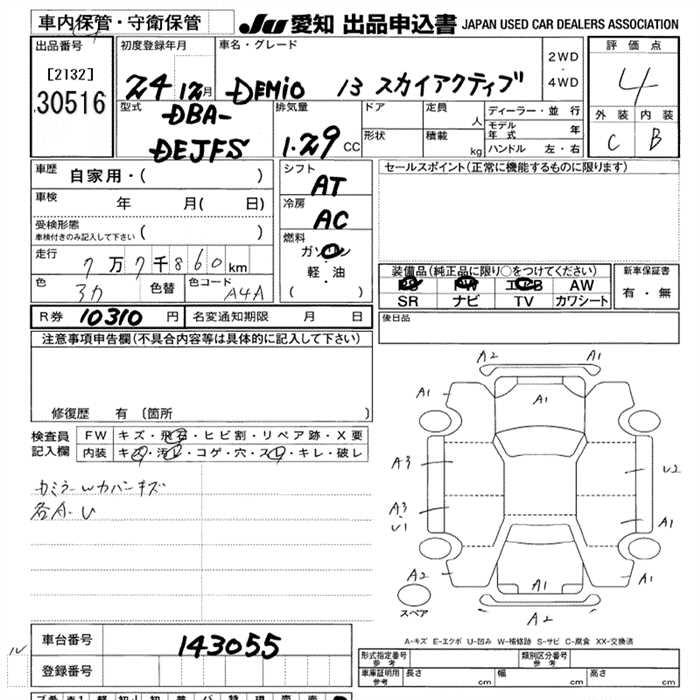 車内保管・守衛保管
JU 愛知 出品申込書 JAPAN USED CAR DEALERS ASSOCIATION
出品番号 [2132] 30516
初度登録年月 24 12月
車名・グレード DEMIO 13 スカイアクティブ
2WD ・ 4WD
評価点 4
外装 C 内装 B
型式 DBA- DEJFS
排気量 1.29 CC
ドア 定員 人
形状 積載 kg
ディーラー・並行
モデル年式 年
ハンドル 左・右
車歴 自家用・( )
シフト AT
セールスポイント(正常に機能するものに限ります)
車検 年 月( 日)
冷房 AC
受検形態 車検付きのみ記入して下さい ( )
燃料 ガソリン 軽・油 ( )
走行 7万7千860km
色 色替 色コード A4A
装備品(純正品に限り○をつけてください)
PS PW エアB AW
SR ナビ TV カワシート
新車保証書 有・無
R券 10310 円 名変通知期限 月 日
後日品
注意事項申告欄(不具合内容等は具体的に記入して下さい)
修復歴 有 〔箇所 〕
検査員記入欄
FW キズ・飛石・ヒビ割・リペア跡・X要
内装 キズ・汚れ・コゲ・穴・スレ・キレ・破レ
各A.U
A2 A1
A1 A1 A1
A3 U2
A3・U1 A1
A2 A1 A1
A2
スペア
A-キズ E-エクボ U-凹み W-補修跡 S-サビ C-腐食 XX-交換済
車台番号 143055
登録番号
型式指定番号 参考 類別区分番号 参考
車庫証明用 参考 長さ cm 幅 cm 高さ cm